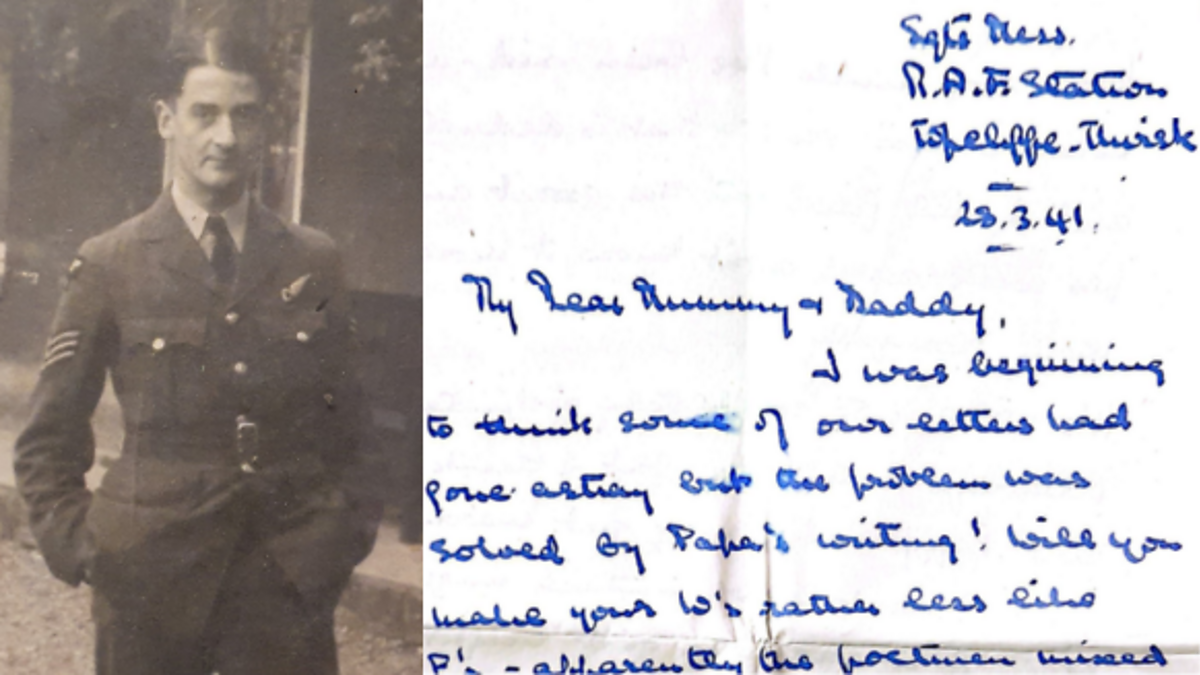 Sgts Mess.
R.A.F. Station
Topcliffe - Thirsk
28.3.41.
My Dear Mummy & Daddy,
I was beginning
to think some of our letters had
gone astray but the problem was
solved by Papa's writing! Will you
make yours W's rather less like
P's - apparently the postmen missed